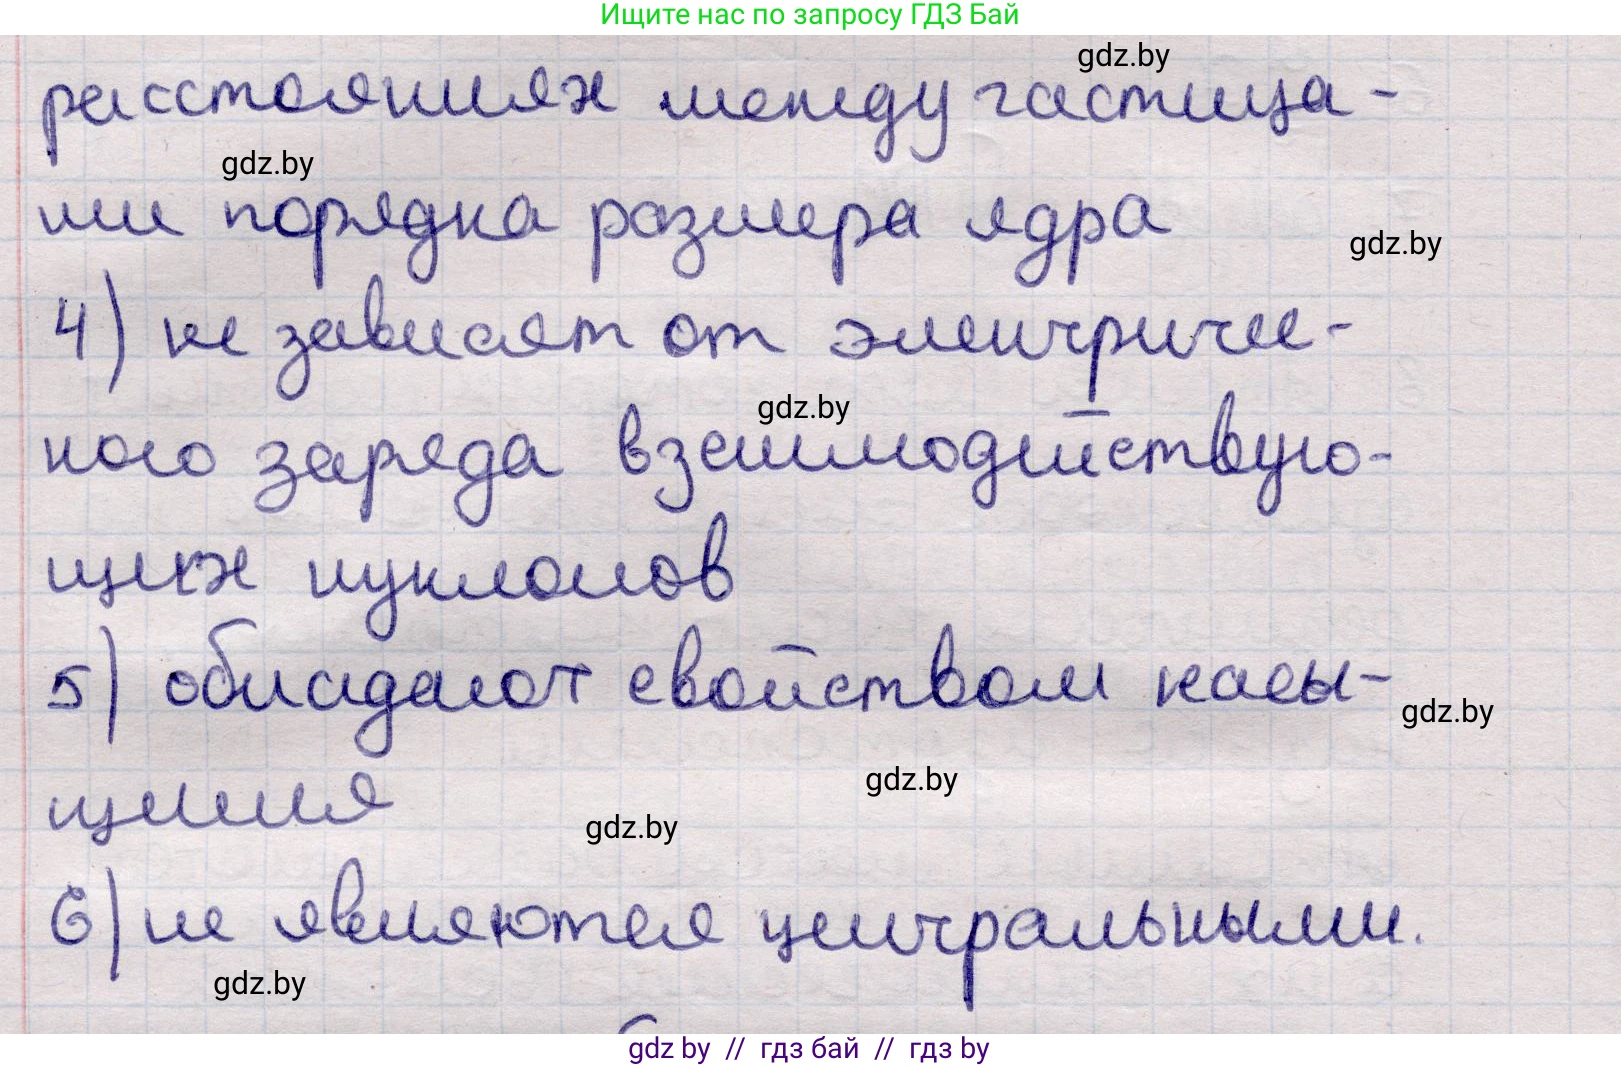 Ищите нас по запросу ГДЗ Бай
gdz.by
расстояниях между частица-
gdz.by
ми порядка размера ядра
gdz.by
4) не зависят от электричес-
gdz.by
кого заряда взаимодействую-
щих нуклонов
5) обладают свойством насы-
gdz.by
щения
gdz.by
gdz.by
6) не являются центральными.
gdz.by
gdz by // гдз бай // гдз by